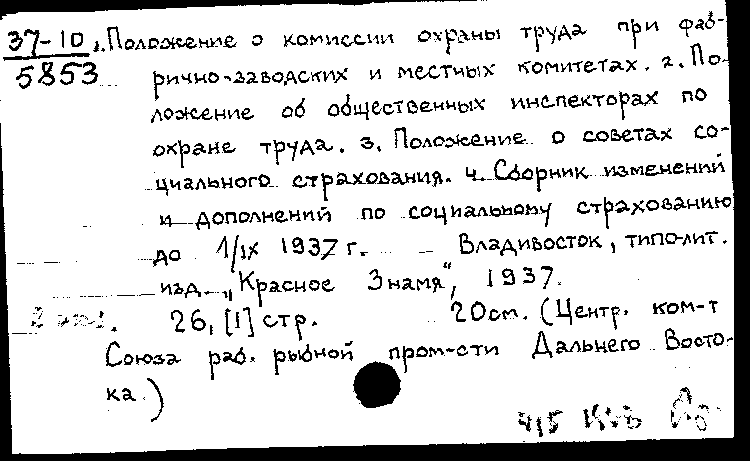 37-10 1. Положение о комиссии охраны труда при фаб-
5853 рично-заводских и местных комитетах. 2. По-
ложение об общественных инспекторах по
охране труда. 3. Положение о советах со-
циального страхования. 4. Сборник изменений
и дополнений по социальному страхованию
до 1/IX 1937 г. – Владивосток, типо-лит.
изд. „Красное Знамя", 1937.
26, [1] стр. 20см. (Центр. ком-т
Союза раб. рыбной пром-сти Дальнего Восто-
ка.)